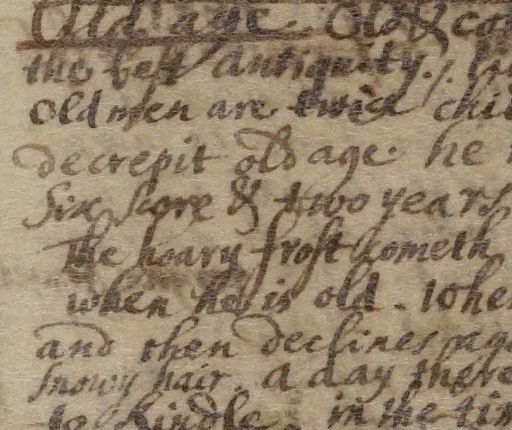 Old age. Old & co
the best Antiquity.
Old men are twice chi
decrepit old age. he
Six score & two years
The hoary frost cometh
when he is old. Whe
and then declines
snowy hair. a day there
to kindle. in the tim